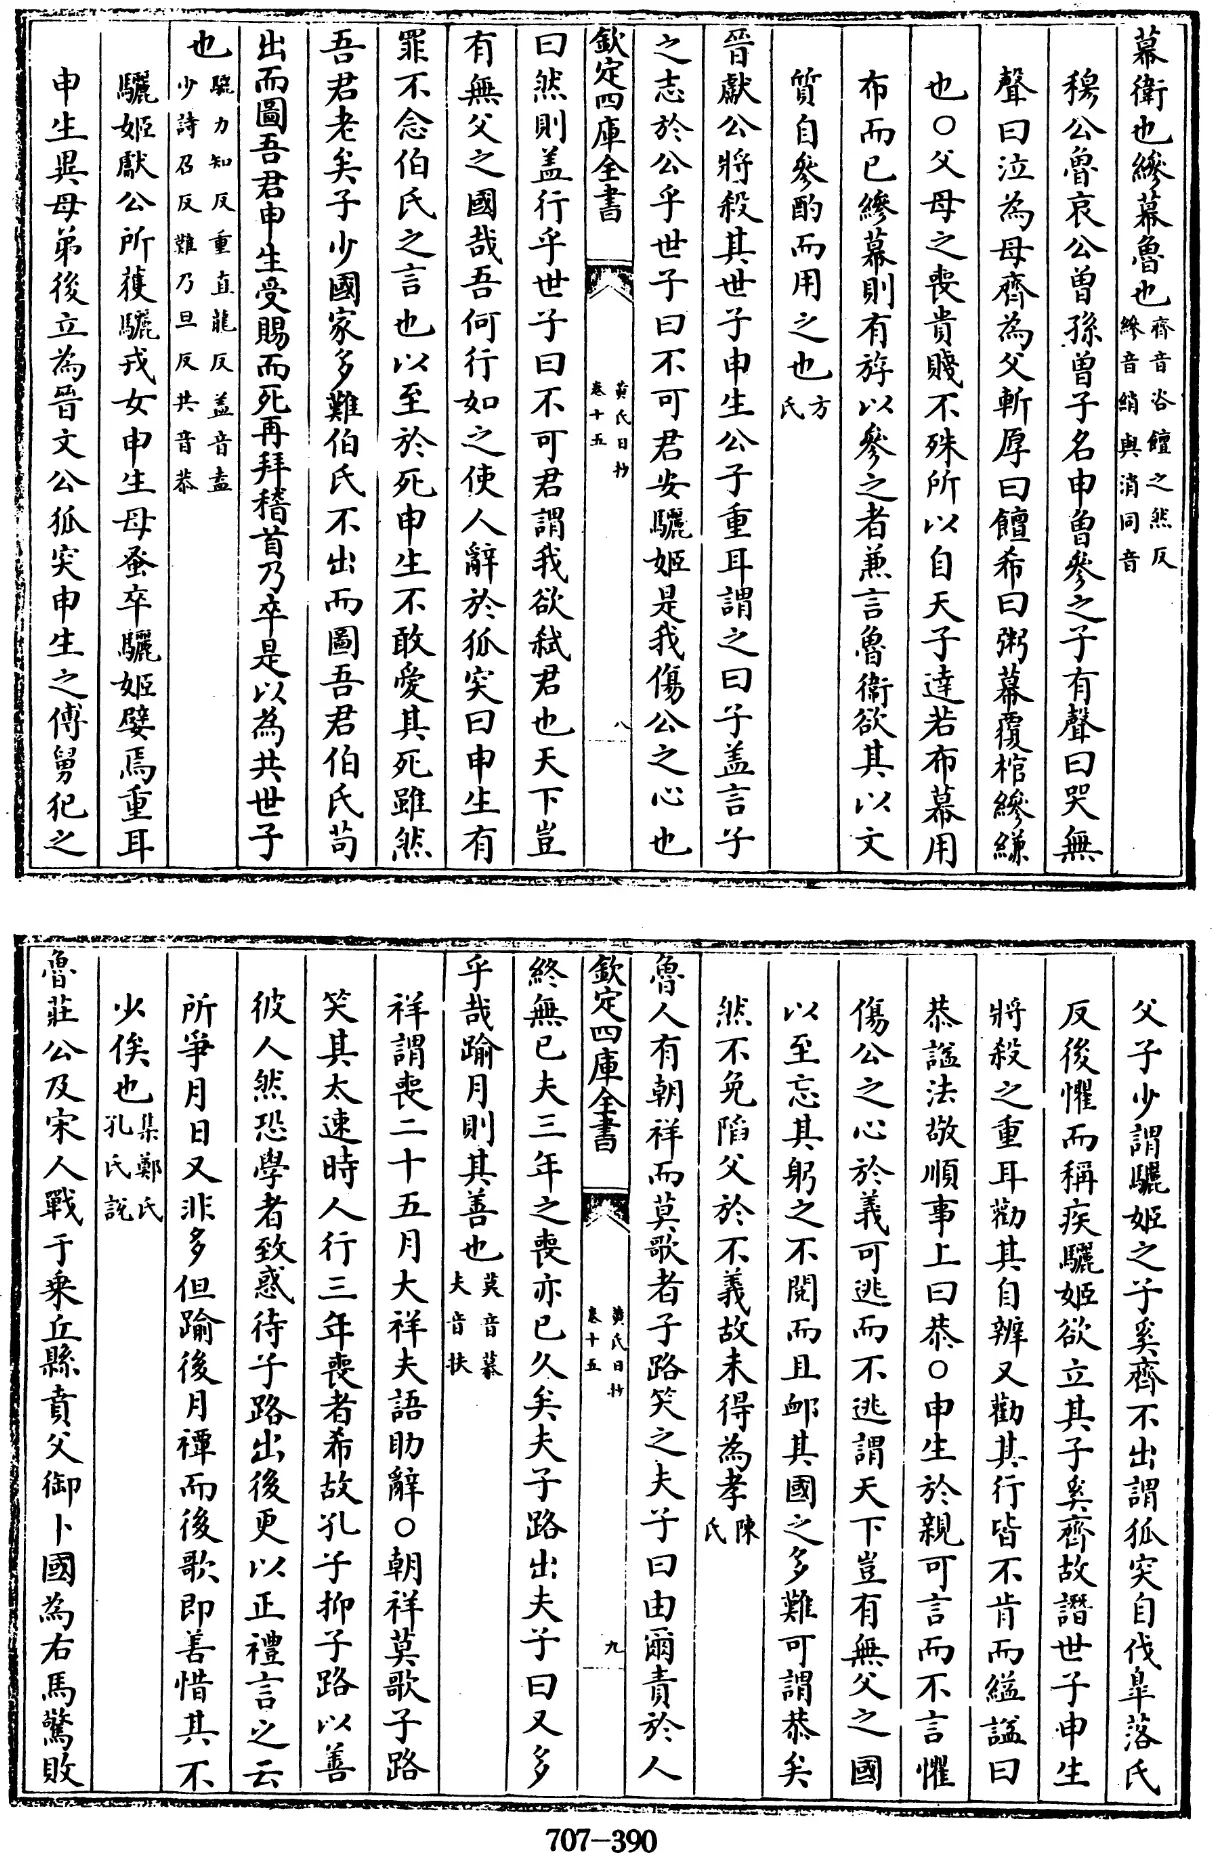 幕衛也縿幕魯也齊音咨饘之然反
縿音綃與消同音
穆公魯哀公曾孫曾子名申魯參之子有聲曰哭無
聲曰泣為母齊為父斬厚曰饘希曰粥幕覆棺縿縑
也○父母之喪貴賤不殊所以自天子達若布幕用
布而已縿幕則有斿以參之者兼言魯衛欲其以文
質自參酌而用之也方氏
晉獻公將殺其世子申生公子重耳謂之曰子盖言子
之志於公乎世子曰不可君安驪姬是我傷公之心也
欽定四庫全書
黃氏日抄
卷十五
八
曰然則盖行乎世子曰不可君謂我欲弒君也天下豈
有無父之國哉吾何行如之使人辭於狐突曰申生有
罪不念伯氏之言也以至於死申生不敢愛其死雖然
吾君老矣子少國家多難伯氏不出而圖吾君伯氏苟
出而圖吾君申生受賜而死再拜稽首乃卒是以為共世子
也驪力知反重直龍反盖音盍
少詩召反難乃旦反共音恭
驪姬獻公所獲驪戎女申生母蚤卒驪姬嬖焉重耳
申生異母弟後立為晉文公狐突申生之傅舅犯之
父子少謂驪姬之子奚齊不出謂狐突自伐臯落氏
反後懼而稱疾驪姬欲立其子奚齊故譖世子申生
將殺之重耳勸其自辨又勸其行皆不肯而縊諡曰
恭諡法敬順事上曰恭○申生於親可言而不言懼
傷公之心於義可逃而不逃謂天下豈有無父之國
以至忘其躬之不閱而且䘏其國之多難可謂恭矣
然不免陷父於不義故未得為孝陳氏
魯人有朝祥而莫歌者子路笑之夫子曰由爾責於人
欽定四庫全書
黃氏日抄
卷十五
九
終無已夫三年之喪亦已久矣夫子路出夫子曰又多
乎哉踰月則其善也莫音慕
夫音扶
祥謂喪二十五月大祥夫語助辭○朝祥莫歌子路
笑其太速時人行三年喪者希故孔子抑子路以善
彼人然恐學者致惑待子路出後更以正禮言之云
所爭月日又非多但踰後月禫而後歌即善惜其不
少俟也集鄭氏
孔氏説
魯莊公及宋人戰于乗丘縣賁父御卜國為右馬驚敗
707-390